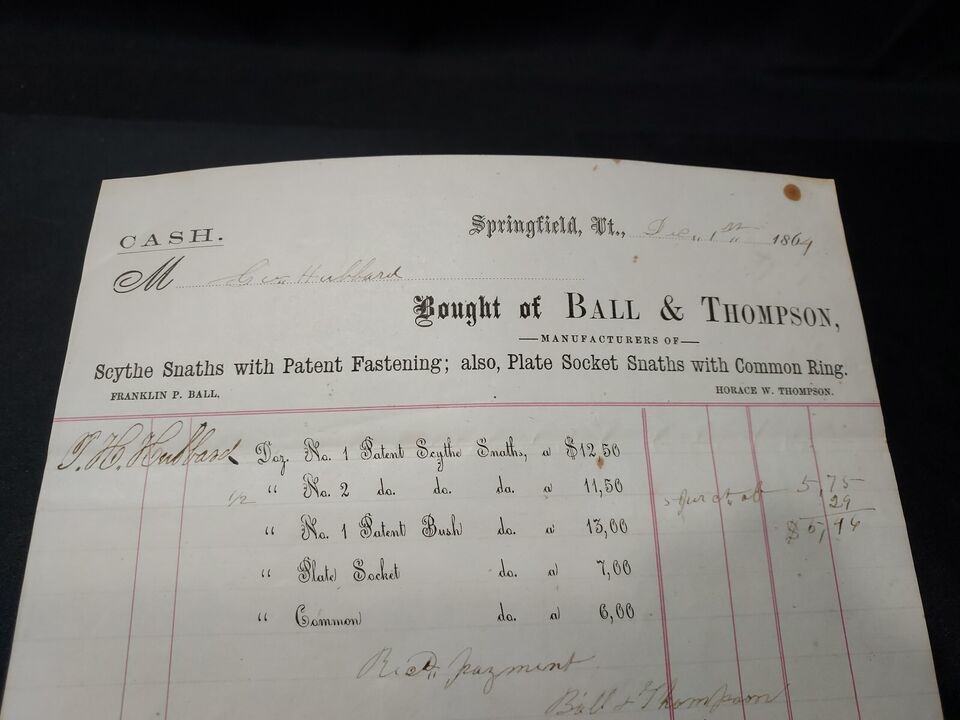 CASH.
Springfield, Vt., Dec,, 1st,, 1864
M Geo. Hubbard
Bought of BALL & THOMPSON,
—MANUFACTURERS OF—
Scythe Snaths with Patent Fastening; also, Plate Socket Snaths with Common Ring.
FRANKLIN P. BALL. HORACE W. THOMPSON.
T. H. Hubbard Doz. No. 1 Patent Scythe Snaths, a $12,50
1/2 " No. 2 do. do. do. a 11,50 5 pr ct. off 5,75
29
" No. 1 Patent Bush do. a 13,00 $5,46
" Plate Socket do. a 7,00
" Common do. a 6,00
Recd,, payment
Ball & Thompson